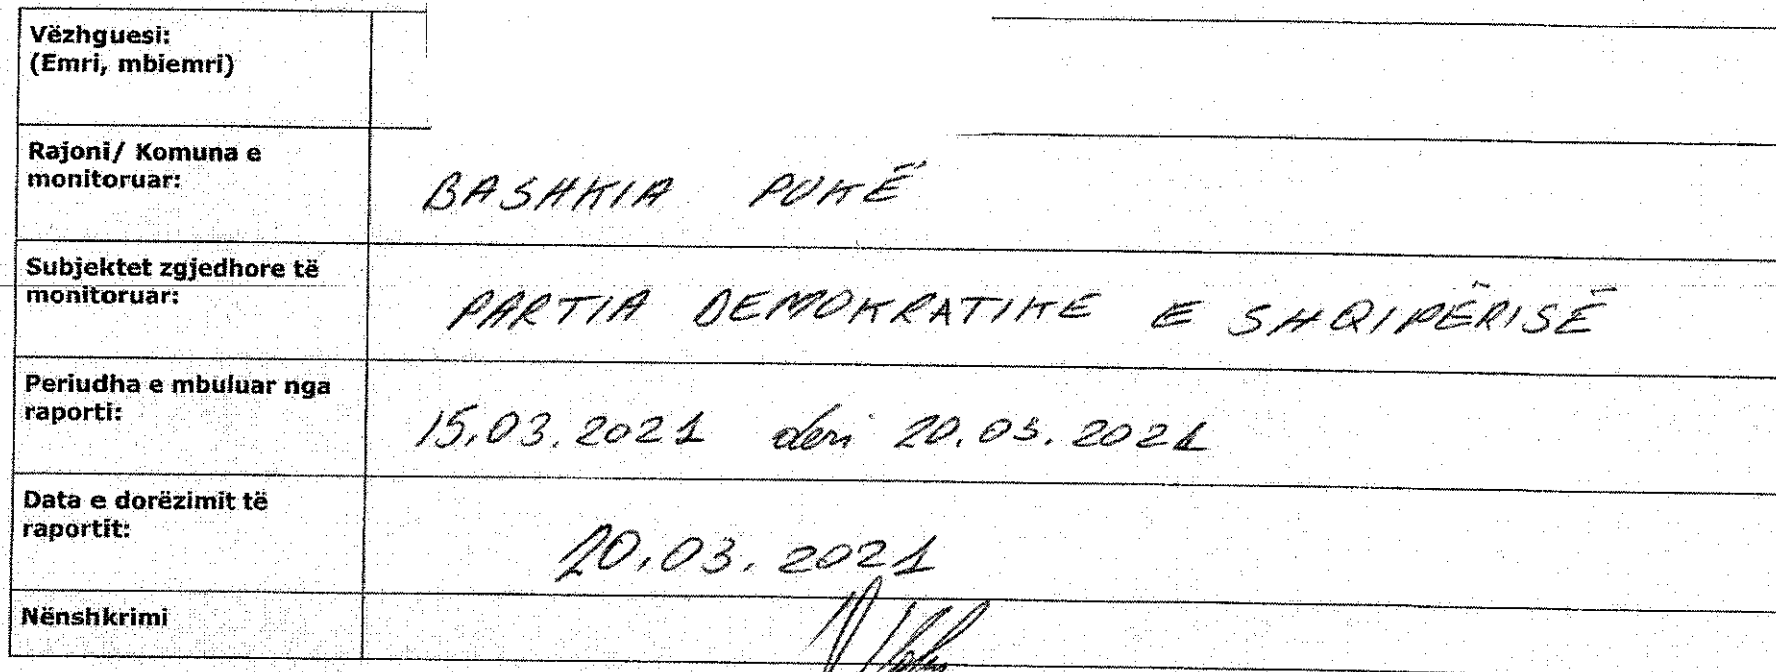 Vëzhguesi:
(Emri, mbiemri)
Rajoni/ Komuna e
monitoruar:
BASHKIA PUKË
Subjektet zgjedhore të
monitoruar:
PARTIA DEMOKRATIKE E SHQIPËRISË
Periudha e mbuluar nga
raporti:
15.03.2021 deri 20.03.2021
Data e dorëzimit të
raportit:
20.03.2021
Nënshkrimi